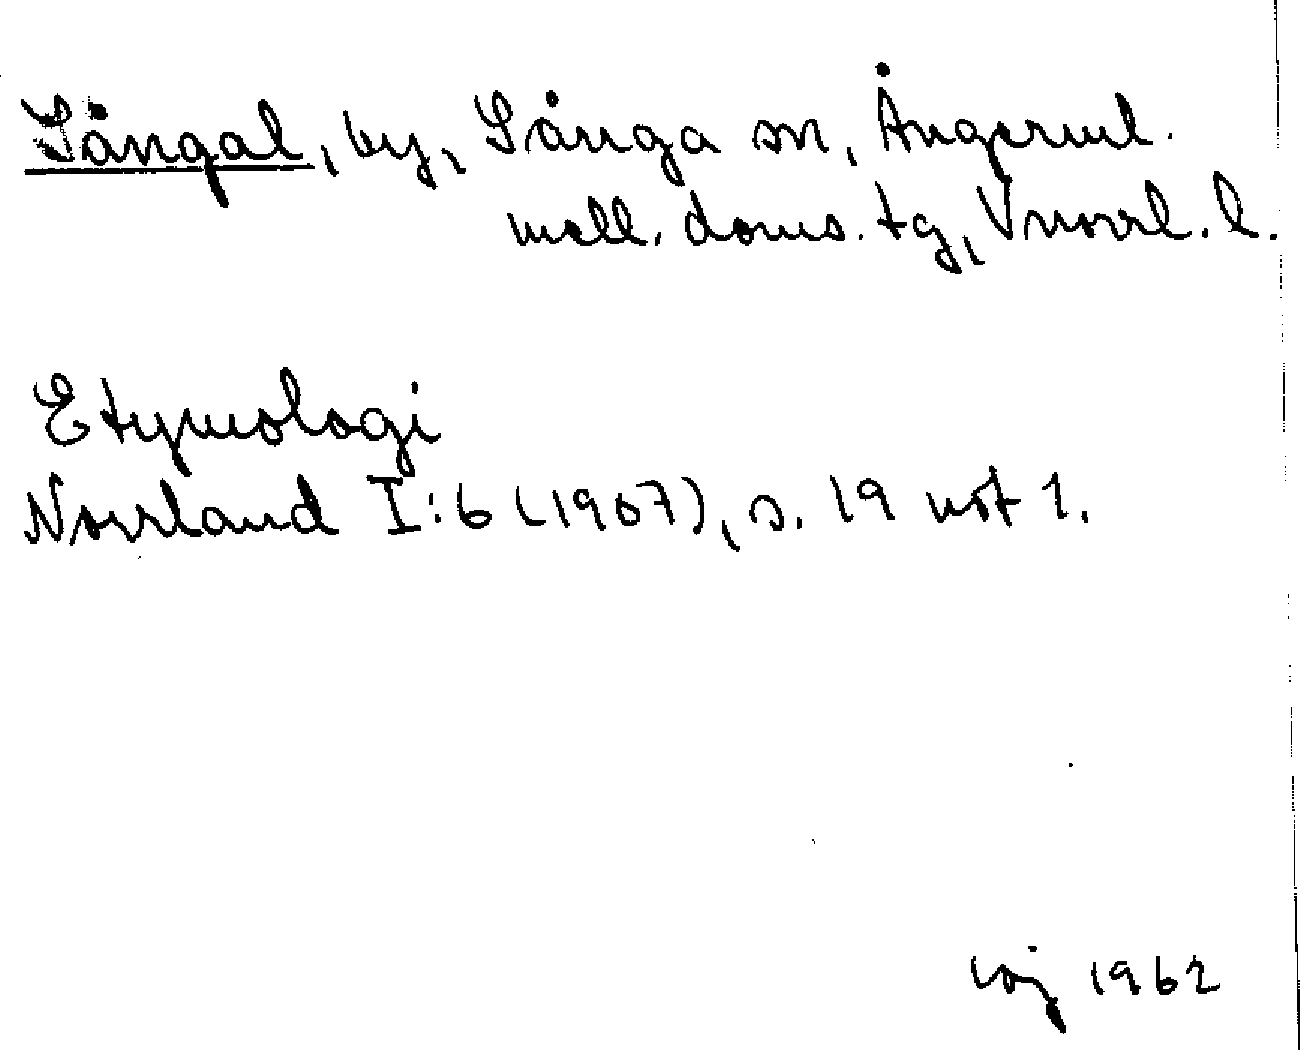 Sångal, by, Sånga sn, Ångerml.
mell. doms. tg, Vnorrl. l.
Etymologi
Norrland I:6 (1907), s. 19 not 1.
1962